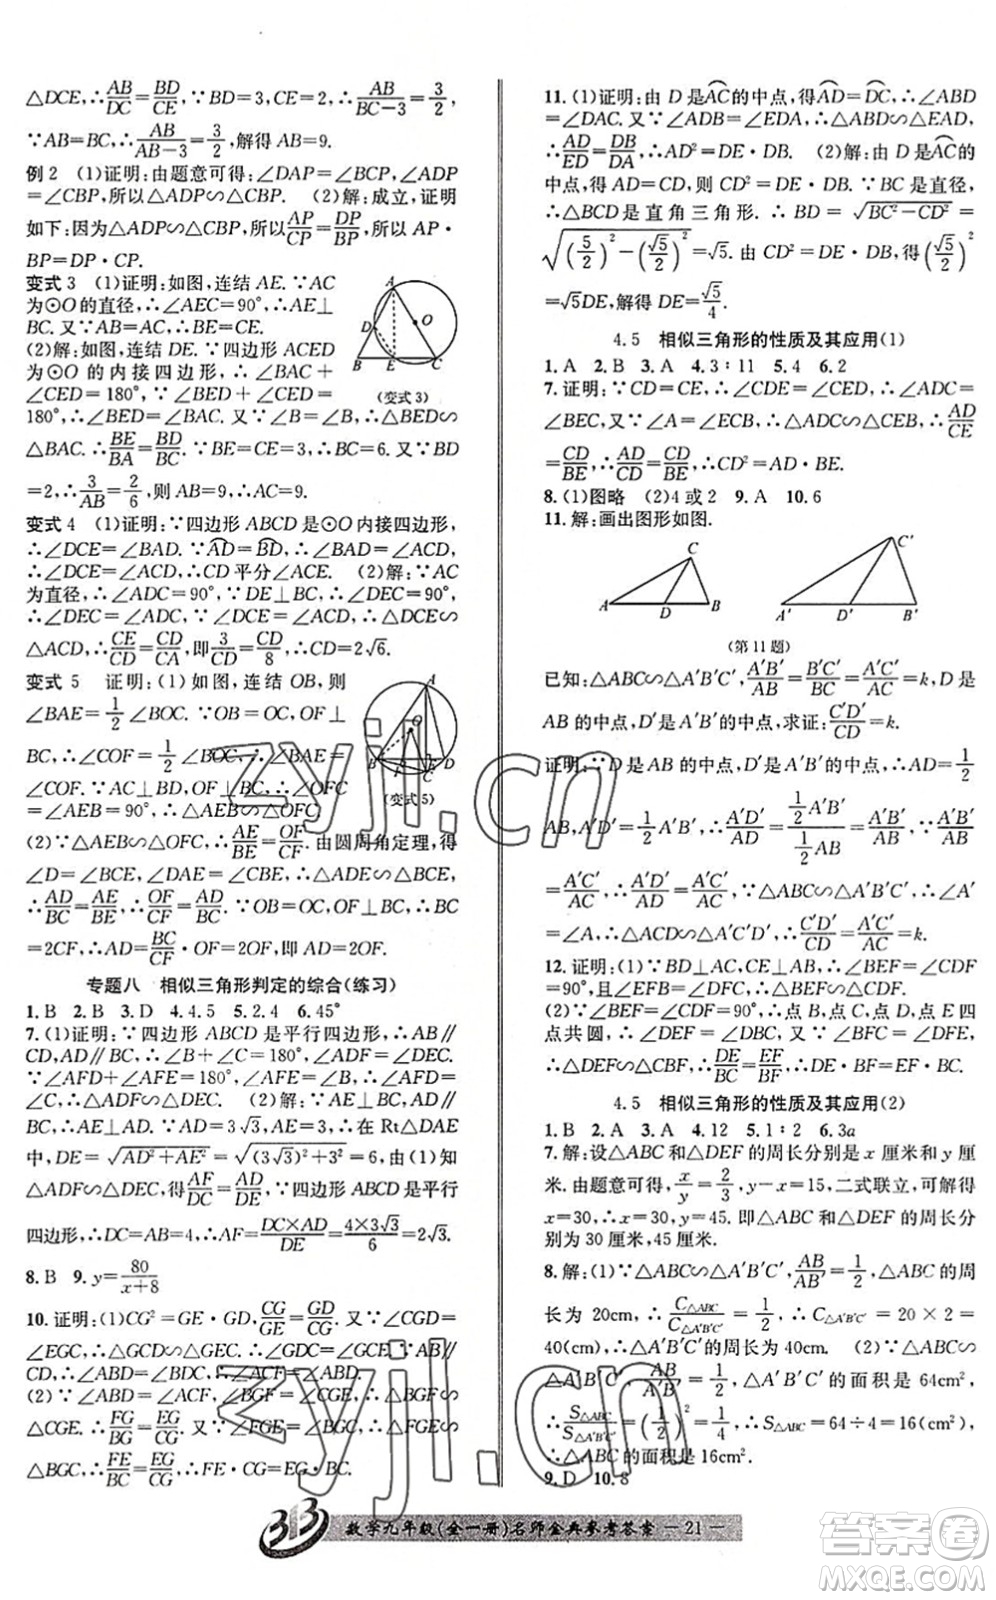 △DCE,∴AB/DC=BD/CE.∵BD=3,CE=2,∴AB/(BC-3)=3/2,
∵AB=BC,∴AB/(AB-3)=3/2,解得 AB=9.
例2 (1)证明:由题意可得:∠DAP=∠BCP,∠ADP
=∠CBP,所以△ADP∽△CBP. (2)解:成立,证明
如下:因为△ADP∽△CBP,所以AP/CP=DP/BP,所以 AP·
BP=DP·CP.
变式3 (1)证明:如图,连结 AE.∵AC
为⊙O的直径,∴∠AEC=90°,∴AE⊥
BC.又∵AB=AC,∴BE=CE.
(2)解:如图,连结 DE.∵四边形 ACED
为⊙O的内接四边形,∴∠BAC+
∠CED=180°,∵∠BED+∠CED=
180°,∴∠BED=∠BAC.又∵∠B=∠B,∴△BED∽
△BAC.∴BE/BA=BD/BC.∵BE=CE=3,∴BC=6.又∵BD
=2,∴3/AB=2/6,则 AB=9,∴AC=9.
A
D
O
B
E
C
(变式3)
变式4 (1)证明:∵四边形 ABCD 是⊙O内接四边形,
∴∠DCE=∠BAD.∵AD=BD,∴∠BAD=∠ACD,
∴∠DCE=∠ACD,∴CD平分∠ACE. (2)解:∵AC
为直径,∴∠ADC=90°,∵DE⊥BC,∴∠DEC=90°,
∴∠DEC=∠ADC,∵∠DCE=∠ACD,∴△DCE∽
△ACD,∴CE/CD=CD/CA,即3/CD=CD/8,∴CD=2√6.
变式5 证明:(1)如图,连结 OB,则
∠BAE=1/2∠BOC.∵OB=OC,OF⊥
BC,∴∠COF=1/2∠BOC,∴∠BAE=
∠COF.∵AC⊥BD,OF⊥BC,∴∠OFC
=∠AEB=90°,∴△AEB∽△OFC.
A
O
B
C
D
(变式5)
(2)∵△AEB∽△OFC,∴AE/BE=OF/CF.由圆周角定理,得
∠D=∠BCE,∠DAE=∠CBE.∴△ADE∽△BCE.
∴AD/BC=AE/BE,∴OF/CF=AD/BC.∵OB=OC,OF⊥BC,∴BC
=2CF,∴AD=BC/CF·OF=2OF,即 AD=2OF.
专题八 相似三角形判定的综合(练习)
1.B 2.B 3.D 4.4.5 5.2.4 6.45°
7.(1)证明:∵四边形 ABCD 是平行四边形,∴AB∥
CD,AD∥BC,∴∠B+∠C=180°,∠ADF=∠DEC.
∵∠AFD+∠AFE=180°,∠AFE=∠B,∴∠AFD=
∠C,∴△ADF∽△DEC. (2)解:∵AE⊥BC,AD∥BC,
∴AE⊥AD.∵AD=3√3,AE=3,∴在 Rt△DAE
中,DE=√(AD²+AE²)=√((3√3)²+3²)=6.由(1)知
△ADF∽△DEC,得AF/DC=AD/DE,∵四边形 ABCD 是平行
四边形,∴DC=AB=4,∴AF=DC×AD/DE=4×3√3/6=2√3.
8.B 9.y=80/(x+8)
10.证明:(1)CG²=GE·GD,CG/GE=GD/CG.又∵∠CGD=
∠EGC,∴△GCD∽△GEC.∴∠GDC=∠GCE.∵AB∥CD,
(2)∵∠AFC=∠ACF,∠BGF=∠CGE,∴△BGF∽
△CGE.∴FG/BG=EG/CG.又∵∠FGE=∠BGC,∴△FGE∽
△BGC,∴FE/BC=FG/BG,∴FE·CG=EG·BC.
11.(1)证明:由 D 是AC的中点,得AD=DC,∴∠ABD
=∠DAC.又∵∠ADB=∠EDA,∴△ABD∽△EAD,
∴AD/ED=BD/DA,∴AD²=DE·DB. (2)解:由 D 是AC的
中点,得 AD=CD,则 CD²=DE·DB.∵BC 是直径,
∴△BCD是直角三角形.∴BD=√(BC²-CD²)=
√((5/2)²-(√5/2)²)=√5.由 CD²=DE·DB,得(√5/2)²
=√5DE,解得 DE=√5/4.
4.5 相似三角形的性质及其应用(1)
1.A 2.B 3.A 4.3∶11 5.4 6.2
7.证明:∵CD=CE,∴∠CDE=∠CED,∴∠ADC=
∠BEC,又∵∠A=∠ECB,∴△ADC∽△CEB,∴AD/CE
=CD/BE,∴AD/CD=CD/BE,∴CD²=AD·BE.
8.(1)图略 (2)4或2 9.A 10.6
11.解:画出图形如图.
A
D
B
C
A′
D′
B′
C′
(第11题)
已知:△ABC∽△A′B′C′,A′B′/AB=B′C′/BC=A′C′/AC=k,D是
AB 的中点,D′是 A′B′的中点,求证:C′D′/CD=k.
证明:∵D是 AB 的中点,D′是 A′B′的中点,∴AD=1/2
AB,A′D′=1/2A′B′,∴A′D′/AD=(1/2A′B′)/(1/2AB)=A′B′/AB,∵A′B′/AB
=A′C′/AC,∴A′D′/AD=A′C′/AC,∵△ABC∽△A′B′C′,∴∠A′
=∠A,∴△A′D′C′∽△ADC,∴C′D′/CD=A′C′/AC=k.
12.证明:(1)∵∠EBF=∠FCD=90°,∠BFE=
∠CFD,∴△EFB∽△DFC,
(2)∵∠BEF=∠FCD=90°,∴点 B,点 C,点 D,点 E 四
点共圆,∴∠DEF=∠DBC,又∵∠BFC=∠DFE,
∴△DEF∽△CBF,∴DE/BC=EF/BF,∴DE·BF=EF·BC.
4.5 相似三角形的性质及其应用(2)
1.B 2.A 3.A 4.12 5.1∶2 6.3a
7.解:设△ABC 和△DEF 的周长分别是 x 厘米和 y 厘
米.由题意可得,x/y=2/3,y-x=15,二式联立,可解得
x=30,y=45.即△ABC和△DEF 的周长分
别为 30 厘米,45 厘米.
8.解:(1)∵△ABC∽△A′B′C′,AB/A′B′=1/2,△ABC 的周
长为 20cm,∴C△ABC/C△A′B′C′=1/2,∴C△A′B′C′=20×2=
40(cm),∴△A′B′C′的周长为 40cm. (2)∵△ABC∽
△A′B′C′,AB/A′B′=1/2,△A′B′C′的面积是 64cm²,
∴S△ABC/S△A′B′C′=(1/2)²=1/4,∴S△ABC=64÷4=16(cm²),
∴△ABC的面积是16cm².
9.D 10.8
数学九年级(全一册)名师金典参考答案 —21—
zyjl.cn
zyjl.cn
作业精灵